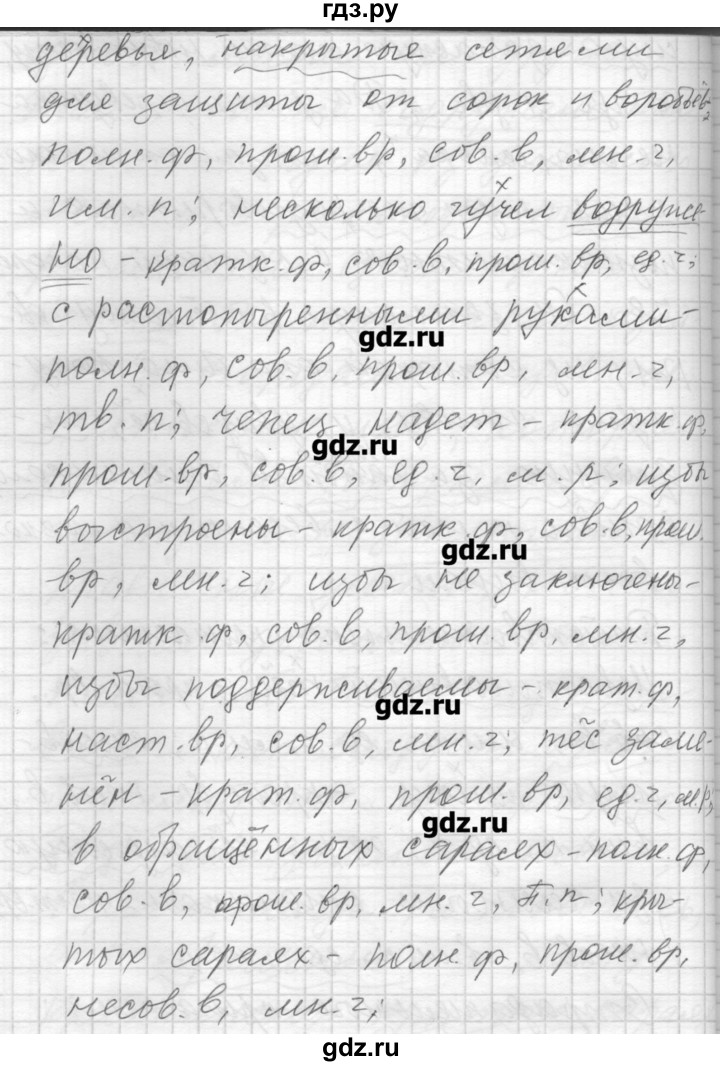 гдз.ру
деревья, накрытые сетями
для защиты от сорок и воробьёв,
полн. ф, прош. вр, сов. в, мн. ч,
им. п; несколько чучел водруже-
но - кратк. ф, сов. в, прош. вр, ед. ч;
с растопыренными руками -
gdz.ru
полн. ф, сов. в, прош. вр, мн. ч,
тв. п; чепец надет - кратк. ф,
gdz.ru
прош. вр, сов. в, ед. ч, м. р; избы
выстроены - кратк. ф, сов. в, прош.
gdz.ru
вр, мн. ч; избы не заключены -
кратк. ф, сов. в, прош. вр, мн. ч,
избы поддерживаемы - крат. ф,
gdz.ru
наст. вр, сов. в, мн. ч; тёс заме-
нён - крат. ф, прош. вр, ед. ч, м. р,
gdz.ru
в обращённых сараях - полн. ф,
сов. в, прош. вр, мн. ч, П. п; кры-
тых сараях - полн. ф, прош. вр,
несов. в, мн. ч;
gdz.ru